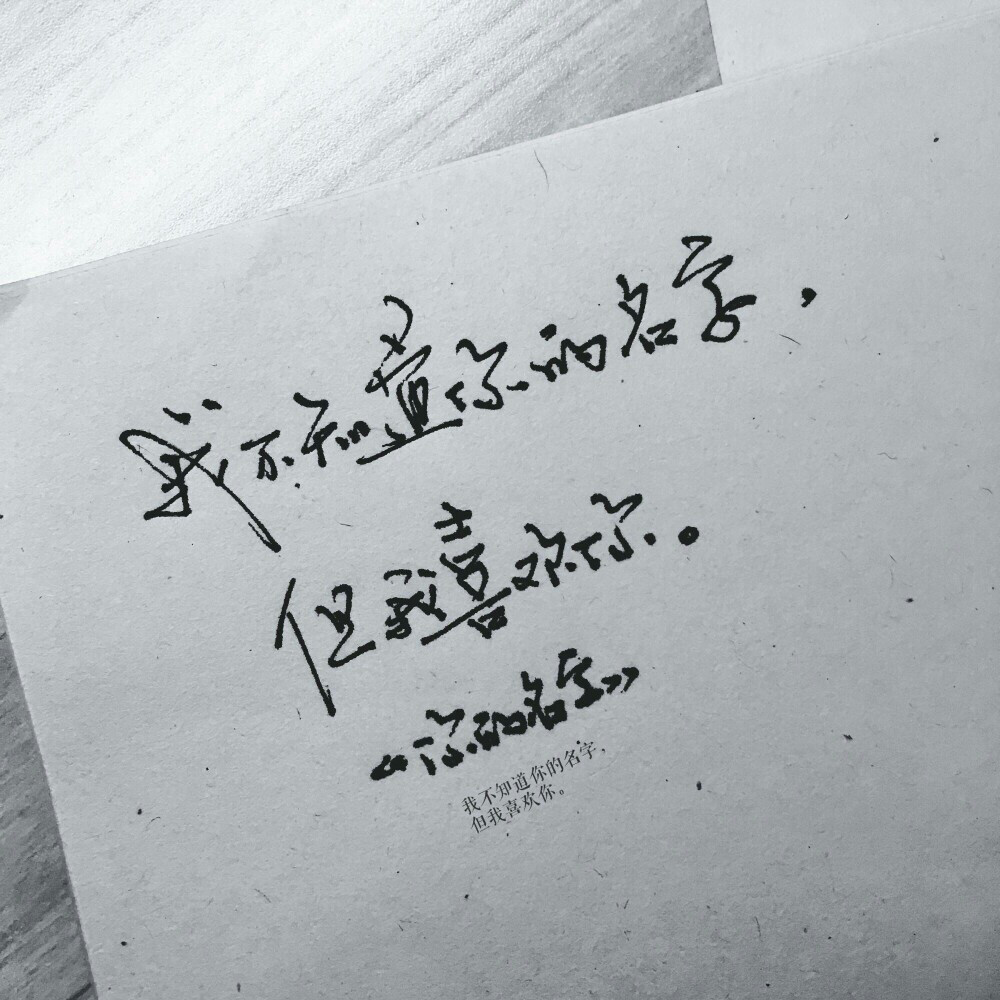 我不知道你的名字，
但我喜欢你。
《你的名字》
我不知道你的名字，
但我喜欢你。